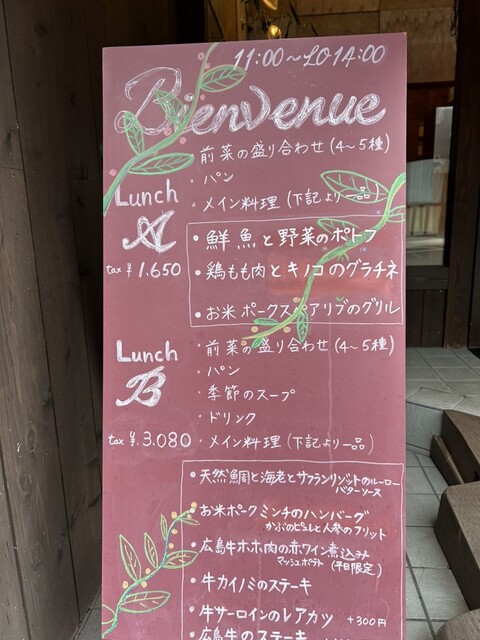 11:00〜LO14:00
Bienvenue
・前菜の盛り合わせ(4〜5種)
・パン
・メイン料理(下記より一品)
Lunch
A
tax ¥1.650
・鮮魚と野菜のポトフ
・鶏もも肉とキノコのグラチネ
・お米ポークスペアリブのグリル
Lunch
B
tax ¥.3.080
・前菜の盛り合わせ(4〜5種)
・パン
・季節のスープ
・ドリンク
・メイン料理(下記より一品)
・天然鯛と海老とサフランリゾットのルーロー
バターソース
・お米ポークミンチのハンバーグ
かぶのピュレと人参のフリット
・広島牛ホホ肉の赤ワイン煮込み
マッシュポテト(平日限定)
・牛カイノミのステーキ
・牛サーロインのレアカツ +300円
・広島牛のステーキ